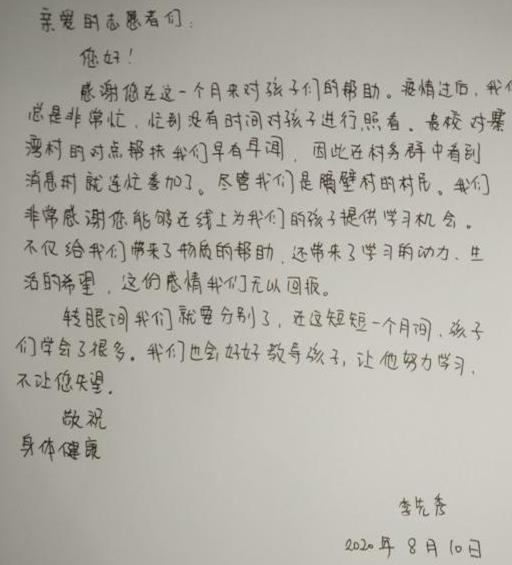 亲爱的志愿者们：
您好！
感谢您在这一个月来对孩子们的帮助。疫情过后，我们
总是非常忙，忙到没有时间对孩子进行照看。贵校对寨
湾村的对点帮扶我们早有耳闻，因此在村务群中看到
消息时就连忙参加了。尽管我们是隔壁村的村民，我们
非常感谢您能够在线上为我们的孩子提供学习机会。
不仅给我们带来了物质的帮助，还带来了学习的动力、生
活的希望，这份感情我们无以回报。
转眼间我们就要分别了，在这短短一个月间，孩子
们学会了很多。我们也会好好教导孩子，让他努力学习，
不让您失望。
敬祝
身体健康
李先秀
2020年8月10日